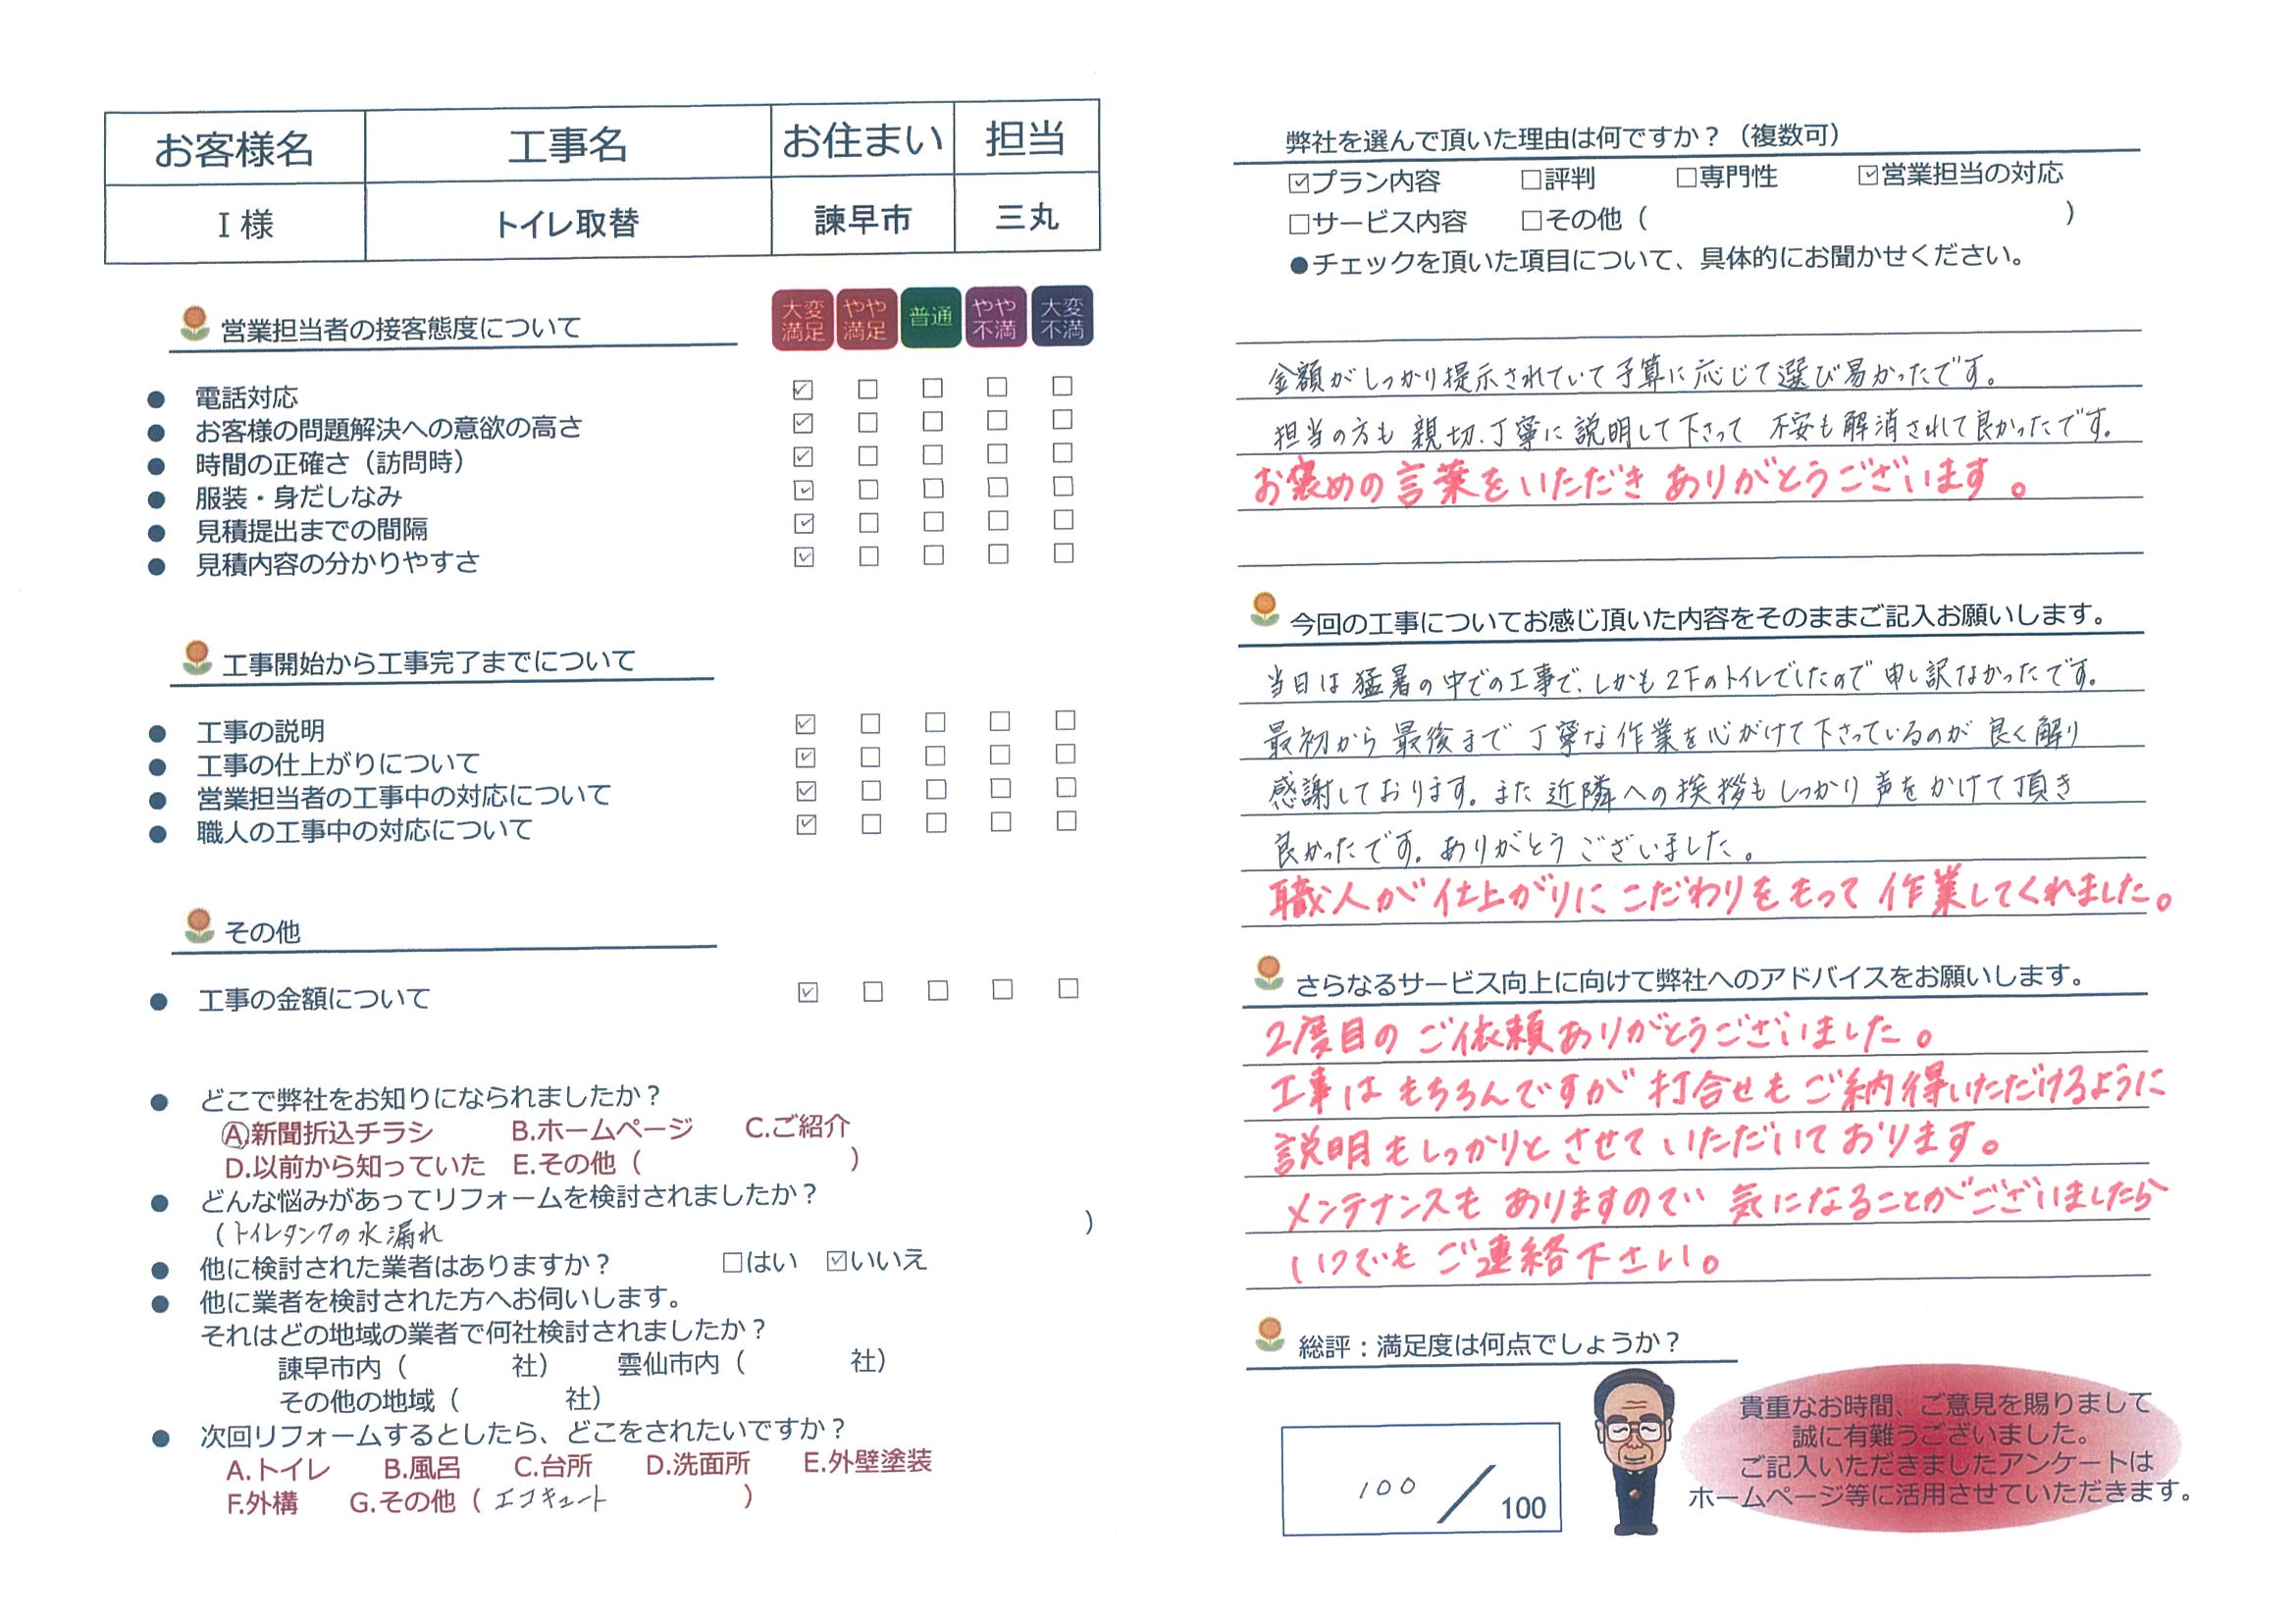 お客様名 工事名 お住まい 担当
I 様 トイレ取替 諫早市 三丸
営業担当者の接客態度について 大変満足 やや満足 普通 やや不満 大変不満
● 電話対応 ☑ □ □ □ □
● お客様の問題解決への意欲の高さ ☑ □ □ □ □
● 時間の正確さ（訪問時） ☑ □ □ □ □
● 服装・身だしなみ ☑ □ □ □ □
● 見積提出までの間隔 ☑ □ □ □ □
● 見積内容の分かりやすさ ☑ □ □ □ □
工事開始から工事完了までについて
● 工事の説明 ☑ □ □ □ □
● 工事の仕上がりについて ☑ □ □ □ □
● 営業担当者の工事中の対応について ☑ □ □ □ □
● 職人の工事中の対応について ☑ □ □ □ □
その他
● 工事の金額について ☑ □ □ □ □
● どこで弊社をお知りになられましたか？
A.新聞折込チラシ B.ホームページ C.ご紹介
D.以前から知っていた E.その他（ ）
● どんな悩みがあってリフォームを検討されましたか？
（トイレタンクの水漏れ ）
● 他に検討された業者はありますか？ □はい ☑いいえ
● 他に業者を検討された方へお伺いします。
それはどの地域の業者で何社検討されましたか？
諫早市内（ 社） 雲仙市内（ 社）
その他の地域（ 社）
● 次回リフォームするとしたら、どこをされたいですか？
A.トイレ B.風呂 C.台所 D.洗面所 E.外壁塗装
F.外構 G.その他（ エコキュート ）
弊社を選んで頂いた理由は何ですか？（複数可）
☑プラン内容 □評判 □専門性 ☑営業担当の対応
□サービス内容 □その他（ ）
●チェックを頂いた項目について、具体的にお聞かせください。
金額がしっかり提示されていて予算に応じて選び易かったです。
担当の方も親切、丁寧に説明して下さって 不安も解消されて良かったです。
お褒めの言葉をいただき ありがとうございます。
今回の工事についてお感じ頂いた内容をそのままご記入お願いします。
当日は猛暑の中での工事で、しかも2Fのトイレでしたので申し訳なかったです。
最初から最後まで丁寧な作業を心がけて下さっているのが良く解り
感謝しております。また近隣への挨拶もしっかり声をかけて頂き
良かったです。ありがとうございました。
職人が仕上がりにこだわりをもって作業してくれました。
さらなるサービス向上に向けて弊社へのアドバイスをお願いします。
2度目のご依頼ありがとうございました。
工事はもちろんですが打合せもご納得いただけるように
説明もしっかりとさせていただいております。
メンテナンスもありますので気になることがございましたら
いつでもご連絡下さい。
総評：満足度は何点でしょうか？
100／100
貴重なお時間、ご意見を賜りまして
誠に有難うございました。
ご記入いただきましたアンケートは
ホームページ等に活用させていただきます。